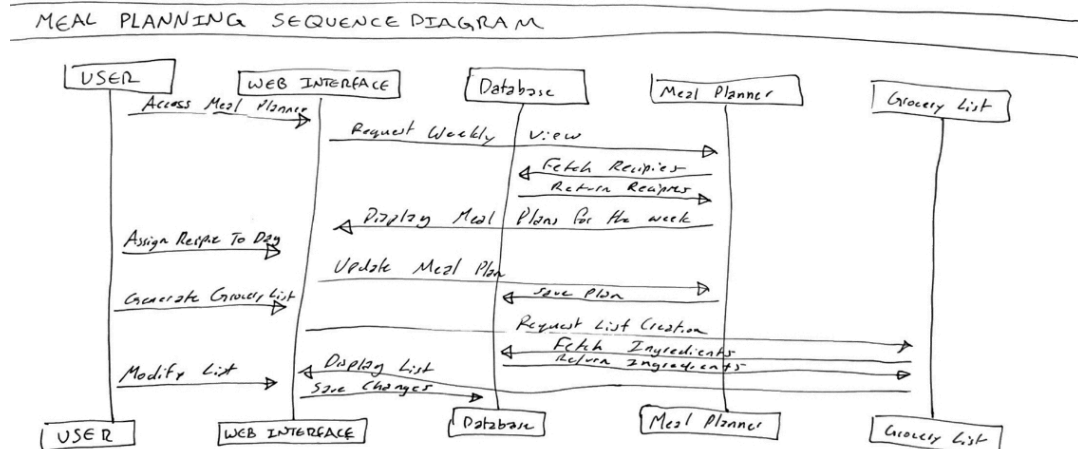 MEAL PLANNING SEQUENCE DIAGRAM
USER
WEB INTERFACE
Database
Meal Planner
Grocery List
Access Meal Planner
Request Weekly View
Fetch Recipies
Return Recipies
Display Meal Plans for the week
Assign Recipe To Day
Update Meal Plan
Save Plan
Generate Grocery List
Request List Creation
Fetch Ingredients
Return Ingredients
Display List
Modify List
Save Changes
USER
WEB INTERFACE
Database
Meal Planner
Grocery List